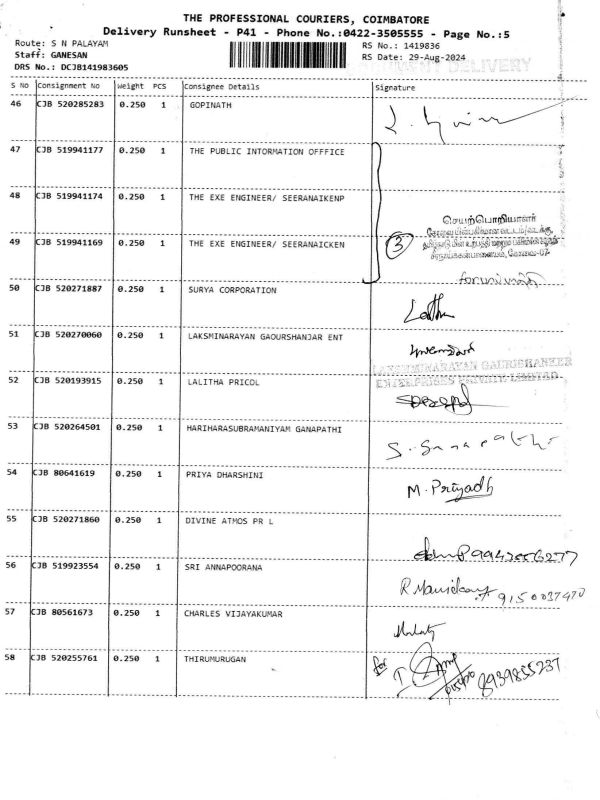 THE PROFESSIONAL COURIERS, COIMBATORE
Delivery Runsheet - P41 - Phone No.:0422-3505555 - Page No.:5
Route: S N PALAYAM
Staff: GANESAN
DRS No.: DCJB141983605
RS No.: 1419836
RS Date: 29-Aug-2024
DOCUMENT DELIVERY
S No Consignment No Weight PCS Consignee Details Signature
46 CJB 520285283 0.250 1 GOPINATH
47 CJB 519941177 0.250 1 THE PUBLIC INTORMATION OFFFICE
48 CJB 519941174 0.250 1 THE EXE ENGINEER/ SEERANAIKENP
49 CJB 519941169 0.250 1 THE EXE ENGINEER/ SEERANAICKEN
3
செயற்பொறியாளர்
50 CJB 520271887 0.250 1 SURYA CORPORATION
51 CJB 520270060 0.250 1 LAKSMINARAYAN GAOURSHANJAR ENT
LAKSHMINARAYAN GAURISHANKER
ENTERPRISES PRIVATE LIMITED
52 CJB 520193915 0.250 1 LALITHA PRICOL
53 CJB 520264501 0.250 1 HARIHARASUBRAMANIYAM GANAPATHI
54 CJB 80641619 0.250 1 PRIYA DHARSHINI
M. Priyadh
55 CJB 520271860 0.250 1 DIVINE ATMOS PR L
56 CJB 519923554 0.250 1 SRI ANNAPOORANA
9150037470
57 CJB 80561673 0.250 1 CHARLES VIJAYAKUMAR
58 CJB 520255761 0.250 1 THIRUMURUGAN
for
8939855237